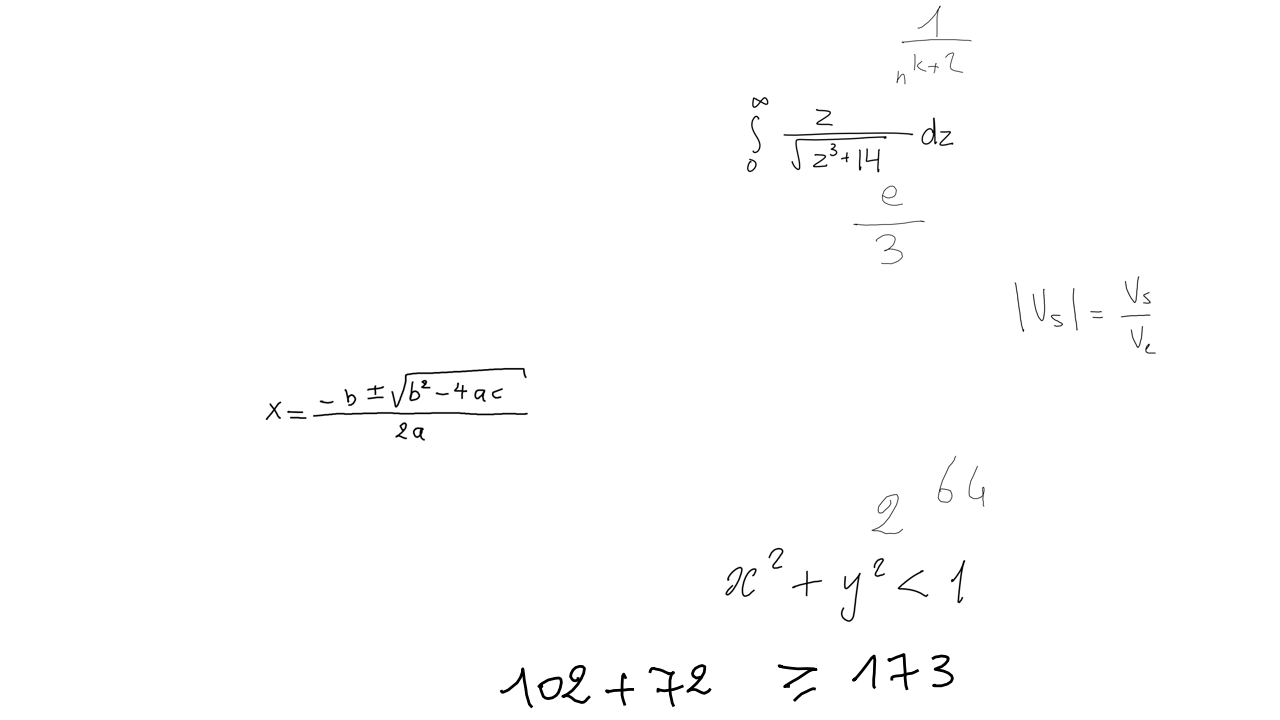 \frac{1}{n^{k+2}}
\int_{0}^{\infty} \frac{z}{\sqrt{z^3+14}} dz
\frac{e}{3}
|V_s| = \frac{V_s}{V_e}
x = \frac{-b \pm \sqrt{b^2-4ac}}{2a}
2^{64}
x^2 + y^2 < 1
102 + 72 \geq 173